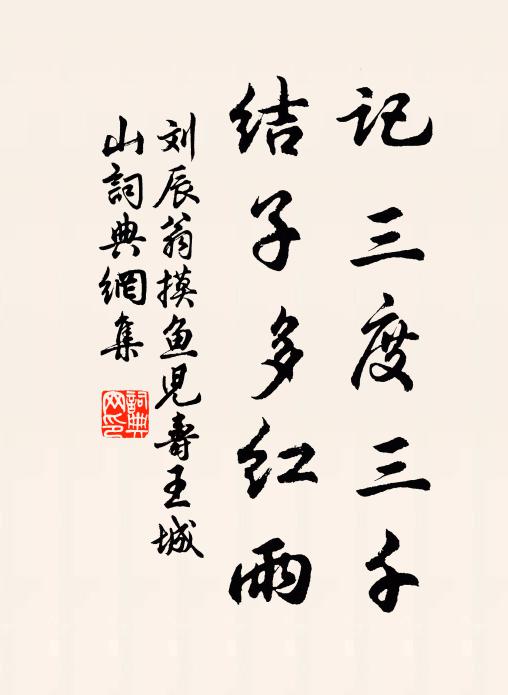 记三度三千
结子多红雨
刘辰翁摸鱼児寿王城
山词典網集
詞典网印